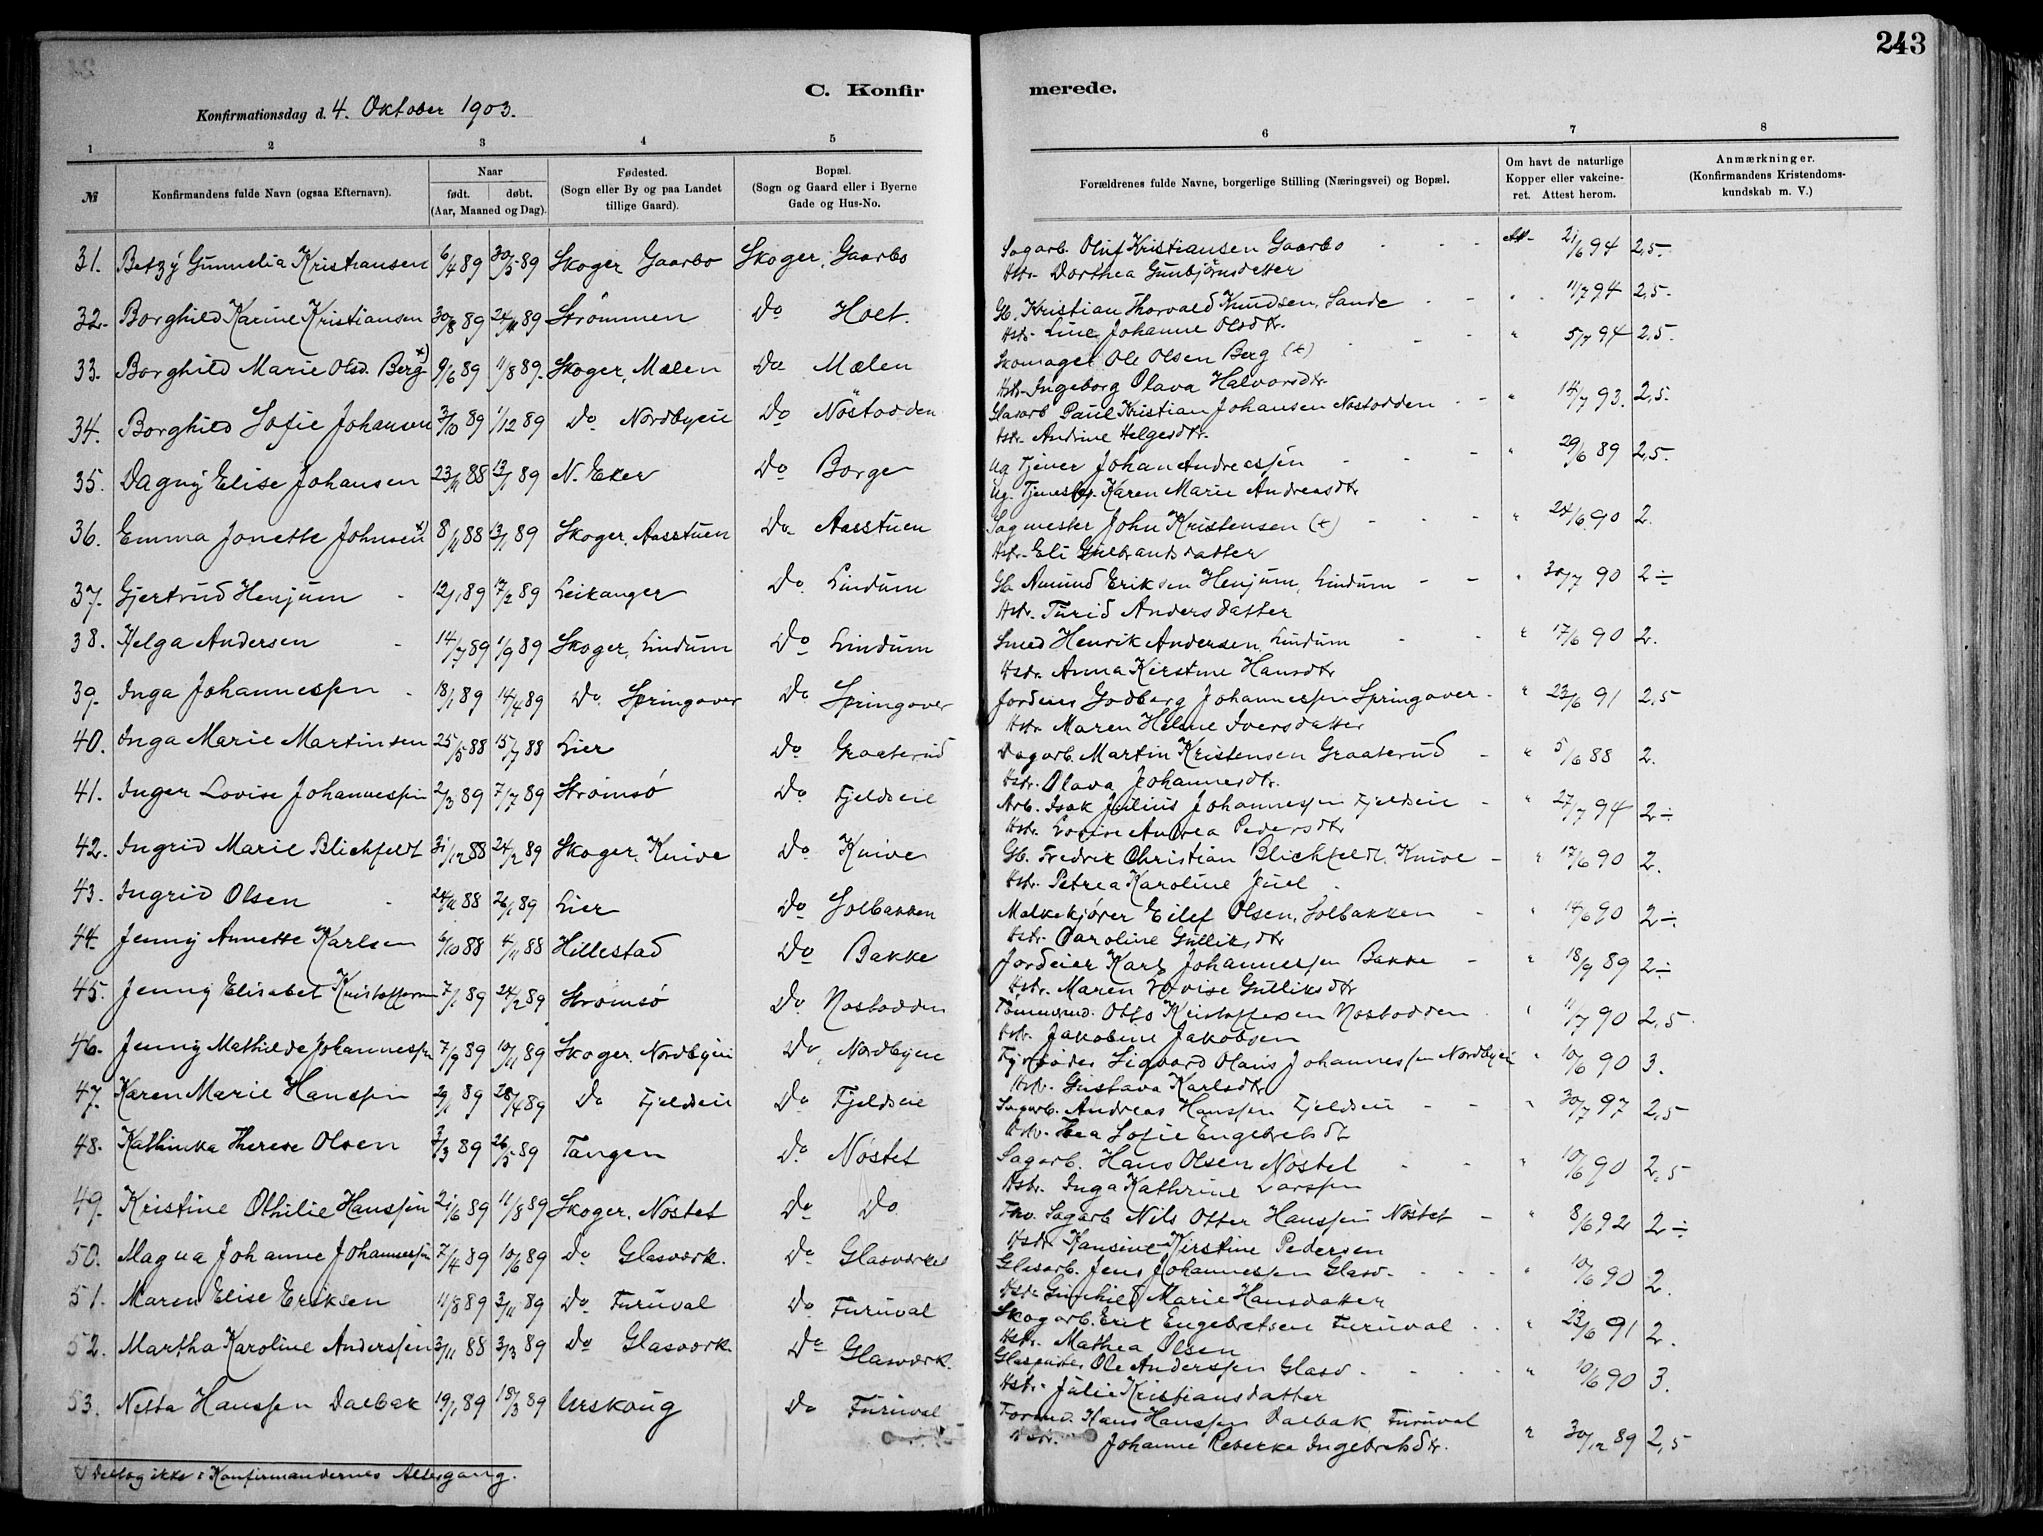 243
C. Konfir merede.
Konfirmationsdag d. 4. Oktober 1903.
1 2 3 4 5 6 7 8
№ Konfirmandens fulde Navn (ogsaa Efternavn). Naar født. døbt. (Aar, Maaned og Dag). Fødested. (Sogn eller By og paa Landet tillige Gaard). Bopæl. (Sogn og Gaard eller i Byerne Gade og Hus-No. Forældrenes fulde Navne, borgerlige Stilling (Næringsvei) og Bopæl. Om havt de naturlige Kopper eller vakcineret. Attest herom. Anmærkninger. (Konfirmandens Kristendomskundskab m. V.)
31. Betzy Gunnelia Kristiansen 6/4 89 30/5 89 Skoger Gaarbo Skoger, Gaarbo Sagarb. Oluf Kristiansen Gaarbo Att. 21/6 94 2,5.
Hstr. Dorthea Gunbjørnsdatter
32. Borghild Karine Kristiansen 30/8 89 24/11 89 Strømmen Do Holt. Gb. Kristian Thorvald Knudsen, Sande " 11/7 94 2,5.
Hstr. Line Johanne Olsdtr.
33. Borghild Marie Olsd. Berg +) 9/6 89 11/8 89. Skoger, Mælen Do Mælen Skomager Ole Olsen Berg (+) " 5/7 94 2,5.
Hstr. Ingeborg Olava Halvorsdtr.
34. Borghild Sofie Johansen 3/10 89 1/12 89 Do Nordbyeie Do Nöstodden Glasarb Paul Kristian Johansen Nostodden " 14/7 93. 2,5.
Hstr. Andrine Helgesdtr.
35. Dagny Elise Johansen 23/11 88 13/1 89 N. Eker Do Borge Ug Tjener Johan Andreassen " 29/6 89 2,5.
Ug. Tjenestep. Karen Marie Andreasdtr
36. Emma Jonette Johnsen +) 8/11 88 13/1 89 Skoger, Aasstuen Do Aasstuen Sagmester John Kristensen (+) " 24/6 90 2.
Hstr. Eli Gulbrandsdatter
37. Gjertrud Henjum 12/1 89 17/2 89 Leikanger Do. Lindum Gb. Amund Eriksen Henjum, Lindum " 30/7 90 2 ÷
Hstr. Turid Andersdatter
38. Helga Andersen 14/7 89 1/9 89 Skoger, Lindum Do Lindum Smed Henrik Andersen, Lindum " 17/6 90 2.
Hstr. Anna Kirstine Hansdtr
39. Inga Johannessen 18/1 89 14/4 89 Do. Springover Do Springover Jordeier Godberg Johannessen Springover " 23/6 91 2,5
Hstr. Maren Helene Iversdatter
40. Inga Marie Martinsen 25/5 88 15/7 88 Lier Do Graaterud Dagarb. Martin Kristensen Graaterud " 5/6 88 2.
Hstr. Olava Johannesdtr.
41. Inger Lovise Johannessen 2/3 89 7/7 89 Strømsø Do Fjeldseie Arb. Isak Julius Johannessen Fjeldseie " 27/7 94 2 ÷
Hstr. Lovise Andrea Pedersdtr
42. Ingrid Marie Blichfeldt 31/12 88 24/2 89 Skoger, Knive Do Knive Gb. Fredrik Christian Blichfeldt, Knive " 17/6 90 2.
Hstr. Petrea Karoline Juel
43. Ingrid Olsen 24/11 88 26/1 89 Lier Do Solbakken Melkekjører Eilef Olsen, Solbakken " 14/6 90 2 ÷
Hstr. Caroline Gulliksdtr
44. Jenny Annette Karlsen 6/10 88 4/11 88 Hillestad Do Bakke Jordeier Karl Johannessen Bakke " 18/9 89 2 ÷
Hstr. Maren Lovise Gulliksdtr
45. Jenny Elisabet Kristoffersen 7/1 89 24/2 89 Strømsø Do Nostodden Tømmermd. Otto Kristoffersen Nostodden " 11/7 90 2,5
Hstr. Jakobine Jakobsen
46. Jenny Mathilde Johannessen 7/9 89 10/11 89 Skoger, Nordbyeie Do Nordbyeie Fyrbøder Sigvard Olaus Johannessen Nordbyeie " 10/6 90 3.
Hstr. Gustava Karlsdtr
47. Karen Marie Hanssen 29/1 89 28/4 89 Do Fjeldseie Do Fjeldseie Sagarb. Andreas Hanssen Fjeldseie " 30/7 97 2,5
Hstr. Thea Sofie Engebretsdtr
48. Kathinka Therese Olsen 7/3 89 26/5 89 Tangen Do. Nøstet Sagarb. Hans Olsen Nøstet " 10/6 90 2,5
Hstr. Inga Kathrine Larssen
49. Kristine Othilie Hanssen 21/6 89 11/8 89 Skoger, Nöstet Do Do Fhv. Sagarb Nils Otter Hanssen Nöstet " 8/6 92 2 ÷
Hstr Hansine Kirstine Pedersen
50. Magna Johanne Johannessen 7/4 89 10/6 89 Do Glasværk. Do Glasværket Glasarb. Jens Johannessen Glasv. " 10/6 90 2.
Hstr Gunhild Marie Hansdatter
51. Maren Elise Eriksen 11/8 89 3/11 89 Do Furuval Do Furuval Skogarb. Erik Engebretsen Furuval " 23/6 91 2.
Hstr. Mathea Olsen
52. Martha Karoline Anderssen 3/11 88 3/3 89 Do Glasværk. Do Glasværk. Glaspuster Ole Anderssen Glasv. " 10/6 90 3.
Hstr. Julie Kristiansdatter
53. Netta Hanssen Dalbak 19/1 89 18/3 89 Urskoug Do Furuval Formd. Hans Hanssen Dalbak, Furuval " 30/12 89 2,5
Hstr. Johanne Rebekke Ingebretsdtr.
+) Deltog ikke i Konfirmandernes Altergang.